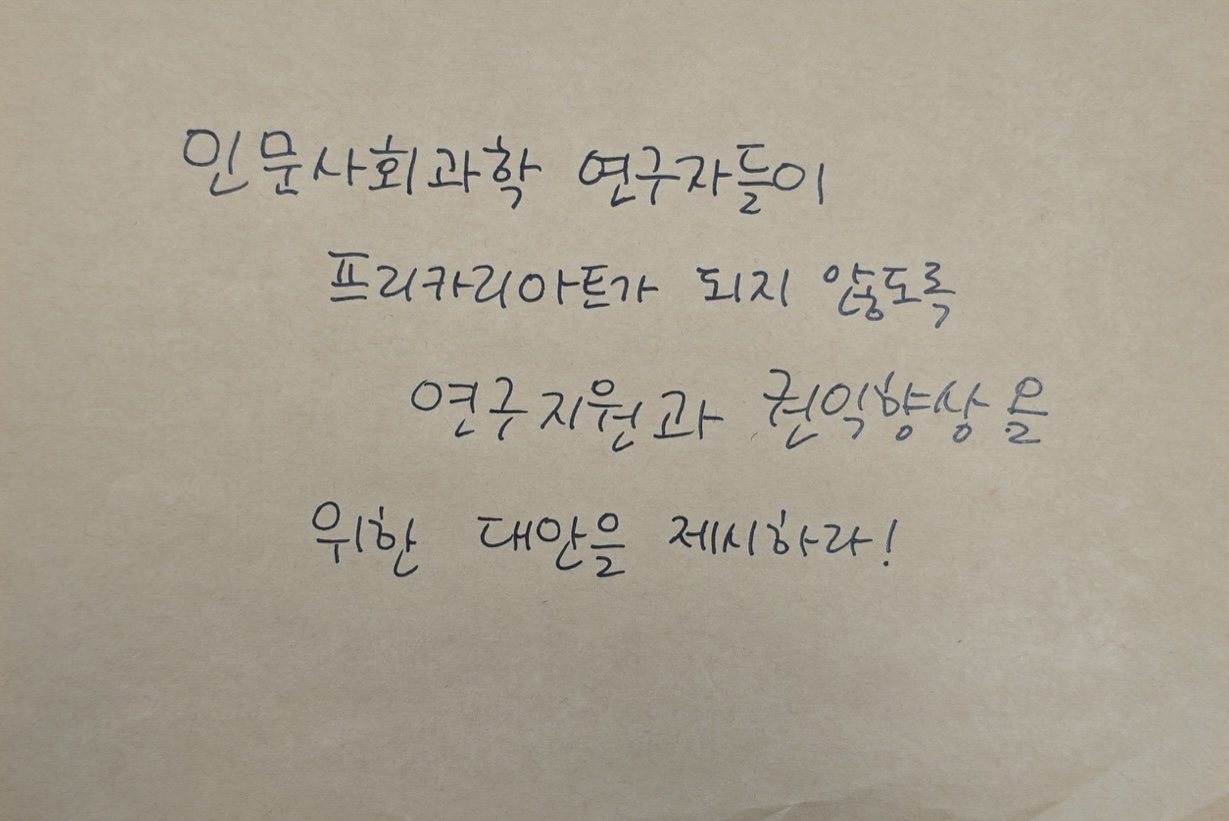 인문사회과학 연구자들이
프리카리아트가 되지 않도록
연구지원과 권익향상을
위한 대안을 제시하라!